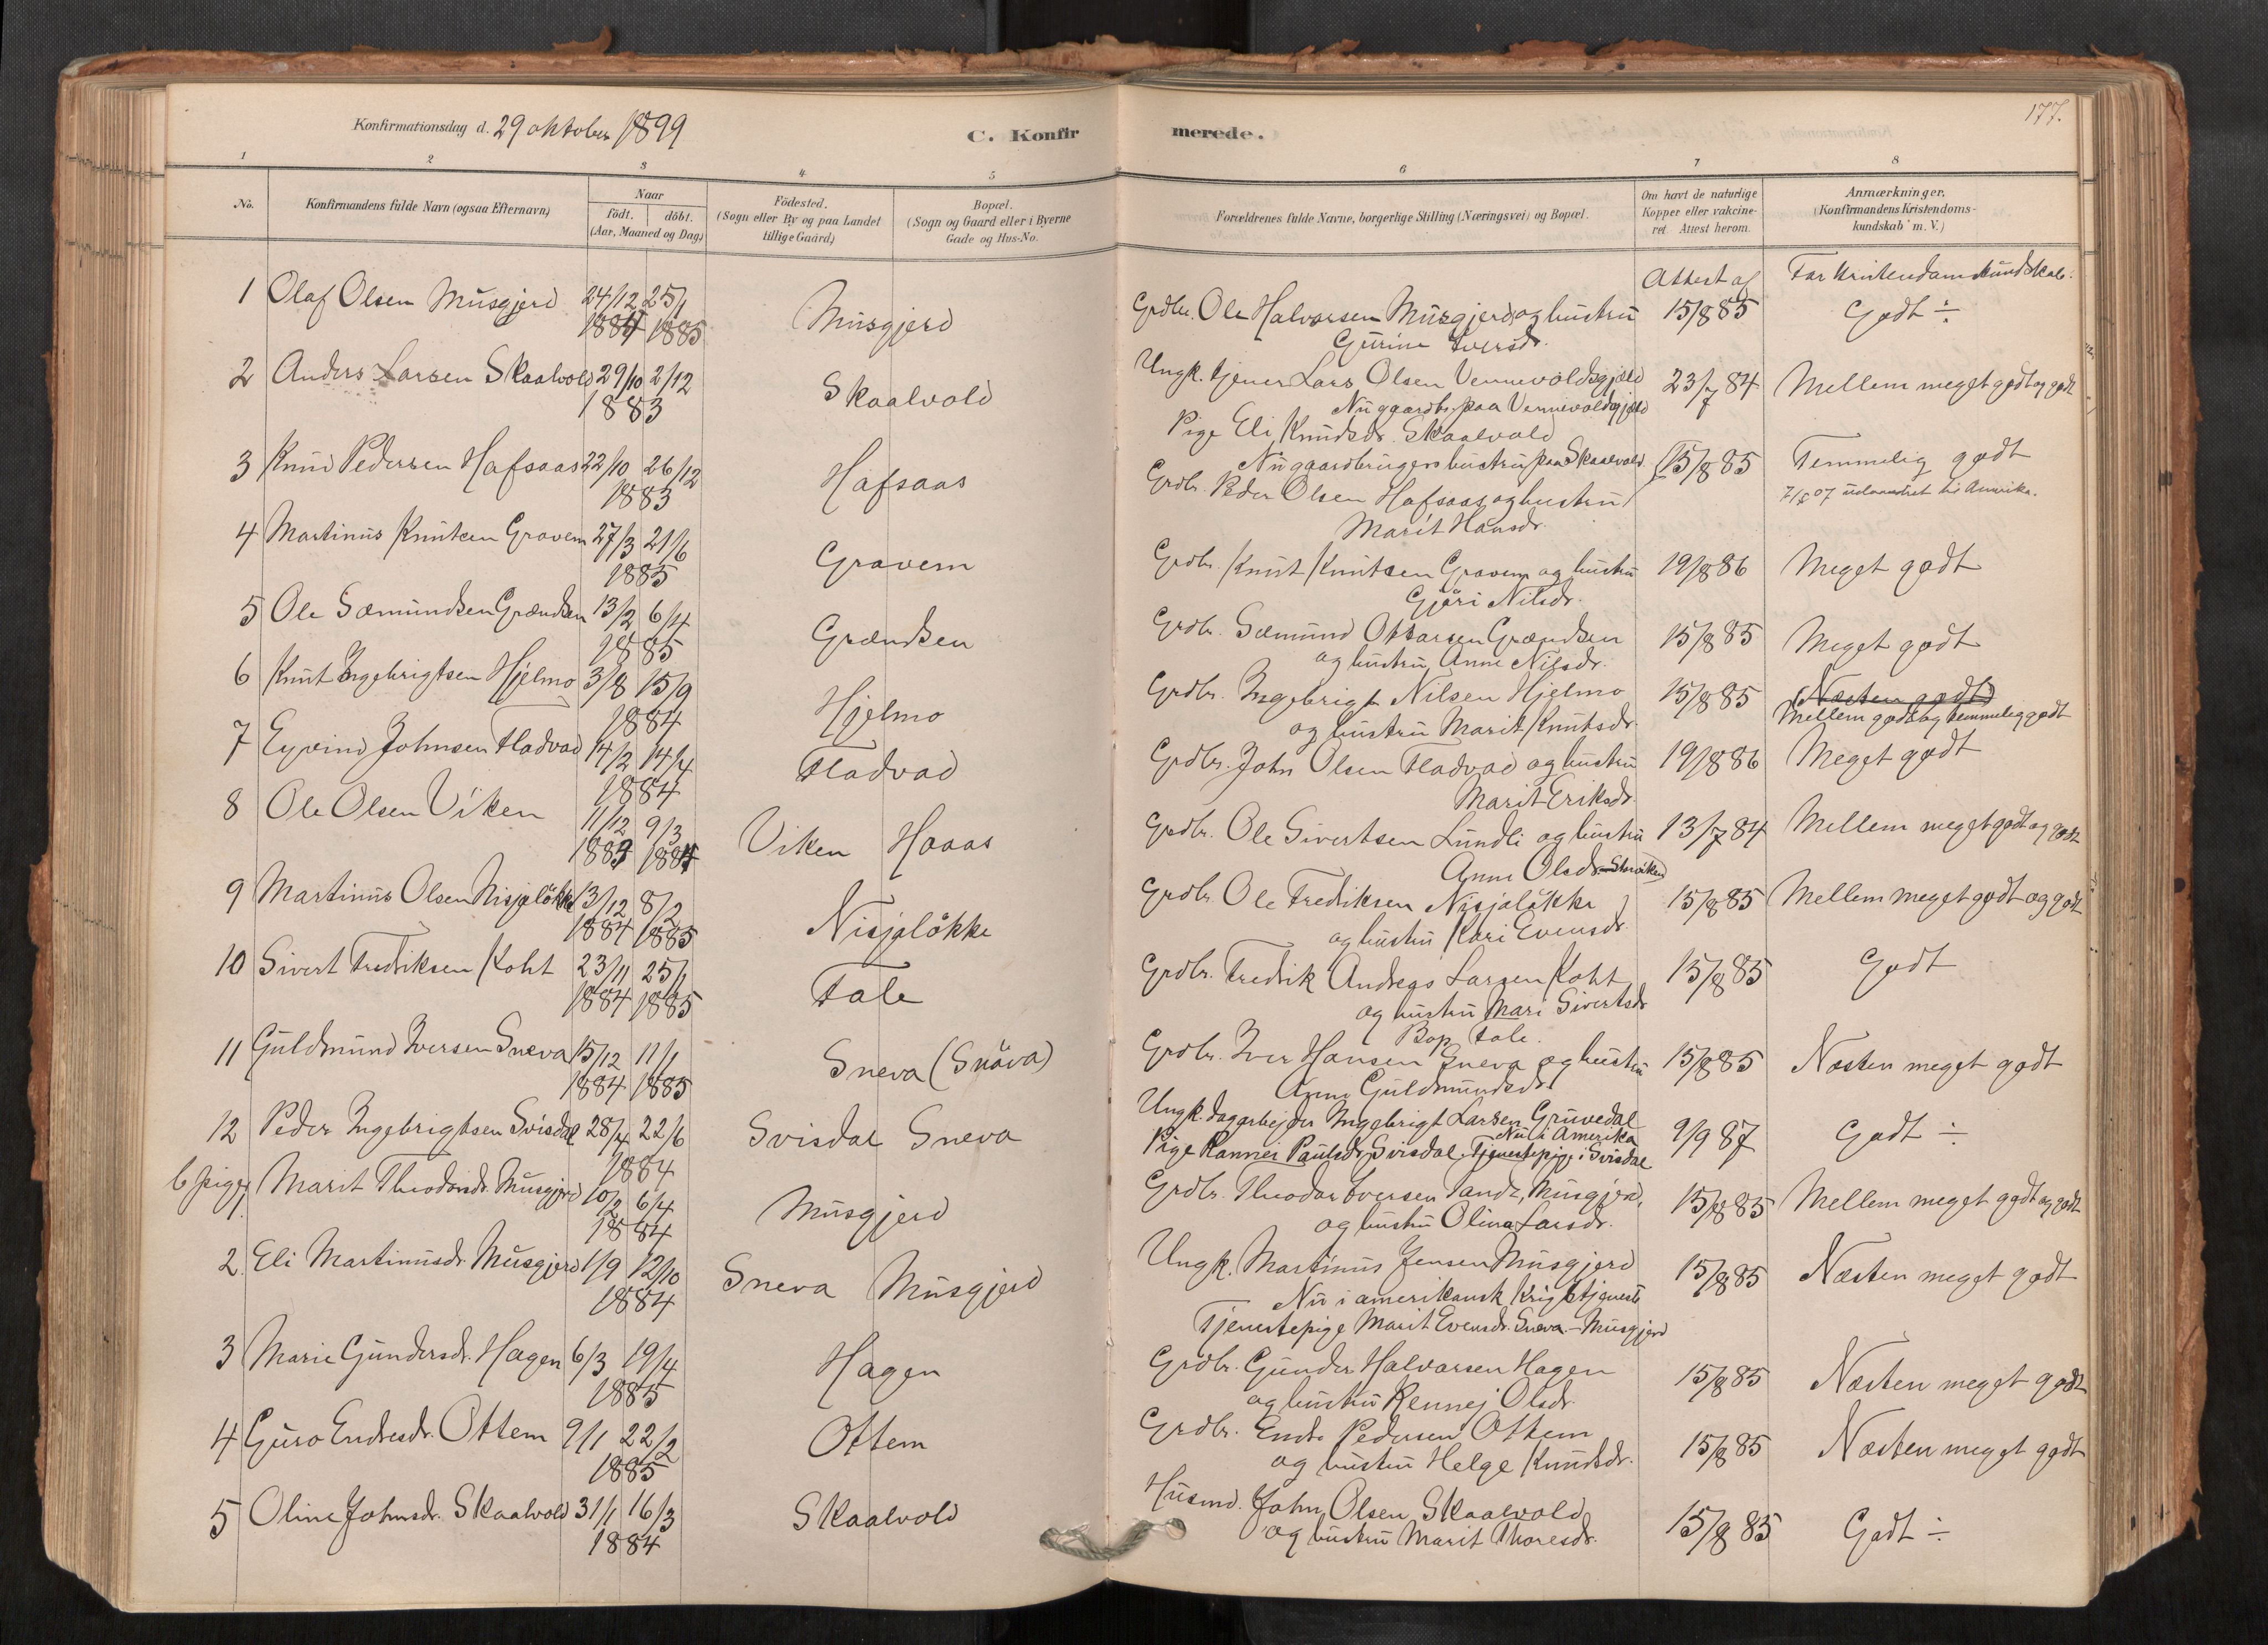 177.
Konfirmationsdag d. 29 oktober 1899
C. Konfirmerede.
1 2 3 4 5 6 7 8
No.
Konfirmandens fulde Navn (ogsaa Efternavn)
Naar
födt. döbt.
(Aar, Maaned og Dag)
Födested.
(Sogn eller By og paa Landet
tillige Gaard)
Bopæl.
(Sogn og Gaard eller i Byerne
Gade og Hus-No.
Forældrenes fulde Navne, borgerlige Stilling (Næringsvei) og Bopæl.
Om havt de naturlige
Kopper eller vakcine-
ret Attest herom.
Anmærkninger.
(Konfirmandens Kristendoms-
kundskab m. V.)
Attest af For Kristendomskundskab:
1 Olaf Olsen Musgjerd 24/12 25/1 Musgjerd Grdbr. Ole Halvorsen Musgjerd og hustru 15/8 85 Godt ÷
1884 1885 Gurine Iversdr.
2 Anders Larsen Skaalvold 29/10 2/12 Skaalvold Ungk. tjener Lars Olsen Vennevoldsgjeld 23/7 84 Mellem meget godt og godt
1883 Nu gaardbr. paa Vennevoldsgjeld
Pige Eli Knudsdr. Skaalvold
Nu gaardbrugers hustru paa Skaalvold
3 Knud Pedersen Hafsaas 22/10 26/12 Hafsaas Grdbr. Peder Olsen Hafsaas og hustru 15/8 85 Temmelig godt
1883 Marit Hansdr. 7/5 07 udvandret til Amerika.
4 Martinus Knutsen Gravem 27/3 21/6 Gravem Grdbr. Knut Knutsen Gravem og hustru 19/8 86 Meget godt
1885 Gjøri Nilsdr.
5 Ole Sæmundsen Grændsen 13/2 6/4 Grændsen Grdbr. Sæmund Ottarsen Grændsen 15/8 85 Meget godt
1885 og hustru Anne Nilsdr.
6 Knut Ingebrigtsen Hjelmo 3/8 15/9 Hjelmo Grdbr. Ingebrigt Nilsen Hjelmo 15/8 85 (Næsten godt)
1884 og hustru Marit Knutsdr. Mellem godt og temmelig godt
7 Eyvind Johnsen Fladvad 14/2 14/4 Fladvad Grdbr. John Olsen Fladvad og hustru 19/8 86 Meget godt
1884 Marit Eriksdr.
8 Ole Olsen Viken 11/12 9/3 Viken Haaas Grdbr. Ole Sivertsen Lundli og hustru 13/7 84 Mellem meget godt og godt
1883 1884 Anne Olsdr.
9 Martinus Olsen Nisjaløkke 13/12 8/2 Nisjaløkke Grdbr. Ole Fredriksen Nisjaløkke 15/8 85 Mellem meget godt og godt
1884 1885 og hustru Kari Evensdr.
10 Sivert Fredriksen Koht 23/11 25/1 Fale Grdbr. Fredrik Andreas Larsen Koht 15/8 85 Godt
1884 1885 og hustru Mari Sivertsdr.
Bop. Fale.
11 Guldmund Iversen Sneva 15/12 11/1 Sneva (Snöva) Grdbr. Iver Hansen Sneva og hustru 15/8 85 Næsten meget godt
1884 1885 Anne Guldmundsdr.
12 Peder Ingebrigtsen Svisdal 28/4 22/6 Svisdal Sneva Ungk. dagarbejder Ingebrigt Larsen Gruvedal 9/9 87 Godt ÷
1884 Nu i Amerika
Pige Rannei Paulsdr. Svisdal. Tjenestepige i Svisdal
6 piger
1. Marit Theodorsdr. Musgjerd 10/2 6/4 Musgjerd Grdbr. Theodor Iversen Sande, Musgjerd, 15/8 85 Mellem meget godt og godt
1884 og hustru Olina Larsdr.
2. Eli Martinusdr. Musgjerd 1/9 12/10 Sneva Musgjerd Ungk. Martinus Jensen Musgjerd 15/8 85 Næsten meget godt
1884 Nu i amerikansk Krigstjeneste
Tjenestepige Marit Evensdr. Sneva - Musgjerd
3 Marie Gundersdr. Hagen 6/3 19/4 Hagen Grdbr. Gunder Halvorsen Hagen 15/8 85 Næsten meget godt
1885 og hustru Rennej Olsdr.
4 Guro Endresdr. Ottem 9/1 22/2 Ottem Grdbr. Endre Pedersen Ottem 15/8 85 Næsten meget godt
1885 og hustru Helge Knudsdr.
5 Oline Johnsdr. Skaalvold 31/1 16/3 Skaalvold Husmd. John Olsen Skaalvold 15/8 85 Godt ÷
1884 og hustru Marit Thoresdr.